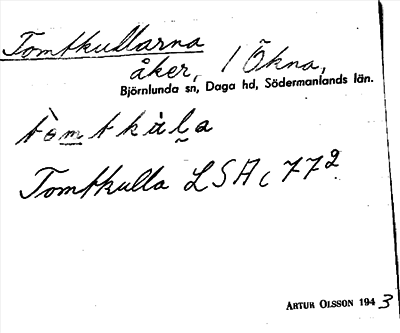 Tomtkullarna
åker, / Ökna,
Björnlunda sn, Daga hd, Södermanlands län.
tòmtkùla
Tomtkulla LSA c 772
ARTUR OLSSON 1943